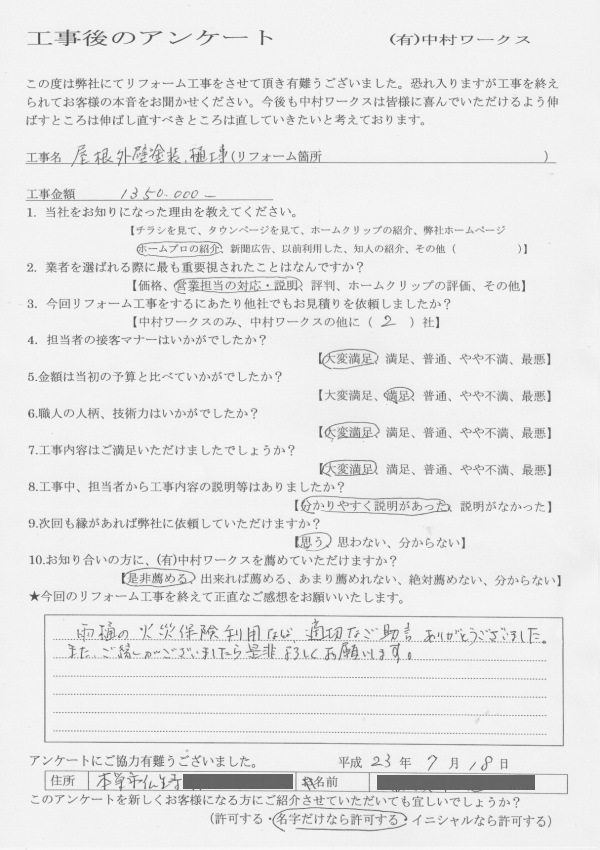 工事後のアンケート (有)中村ワークス
この度は弊社にてリフォーム工事をさせて頂き有難うございました。恐れ入りますが工事を終え
られてお客様の本音をお聞かせください。今後も中村ワークスは皆様に喜んでいただけるよう伸
ばすところは伸ばし直すべきところは直していきたいと考えております。
工事名 屋根外壁塗装、樋工事(リフォーム箇所 )
工事金額 1350.000-
1. 当社をお知りになった理由を教えてください。
【チラシを見て、タウンページを見て、ホームクリップの紹介、弊社ホームページ
ホームプロの紹介、新聞広告、以前利用した、知人の紹介、その他( )】
2. 業者を選ばれる際に最も重要視されたことはなんですか?
【価格、営業担当の対応・説明、評判、ホームクリップの評価、その他】
3. 今回リフォーム工事をするにあたり他社でもお見積りを依頼しましたか?
【中村ワークスのみ、中村ワークスの他に( 2 )社】
4. 担当者の接客マナーはいかがでしたか?
【大変満足、満足、普通、やや不満、最悪】
5.金額は当初の予算と比べていかがでしたか?
【大変満足、満足、普通、やや不満、最悪】
6.職人の人柄、技術力はいかがでしたか?
【大変満足、満足、普通、やや不満、最悪】
7.工事内容はご満足いただけましたでしょうか?
【大変満足、満足、普通、やや不満、最悪】
8.工事中、担当者から工事内容の説明等はありましたか?
【分かりやすく説明があった、説明がなかった】
9.次回も縁があれば弊社に依頼していただけますか?
【思う、思わない、分からない】
10.お知り合いの方に、(有)中村ワークスを薦めていただけますか?
【是非薦める、出来れば薦める、あまり薦めれない、絶対薦めない、分からない】
★今回のリフォーム工事を終えて正直なご感想をお願いいたします。
雨樋の火災保険利用など、適切なご助言ありがとうございました。
また、ご縁がございましたら是非よろしくお願いします。
アンケートにご協力有難うございました。 平成 23 年 7 月 18 日
住所 本巣市 名前
このアンケートを新しくお客様になる方にご紹介させていただいても宜しいでしょうか?
(許可する・名字だけなら許可する・イニシャルなら許可する)